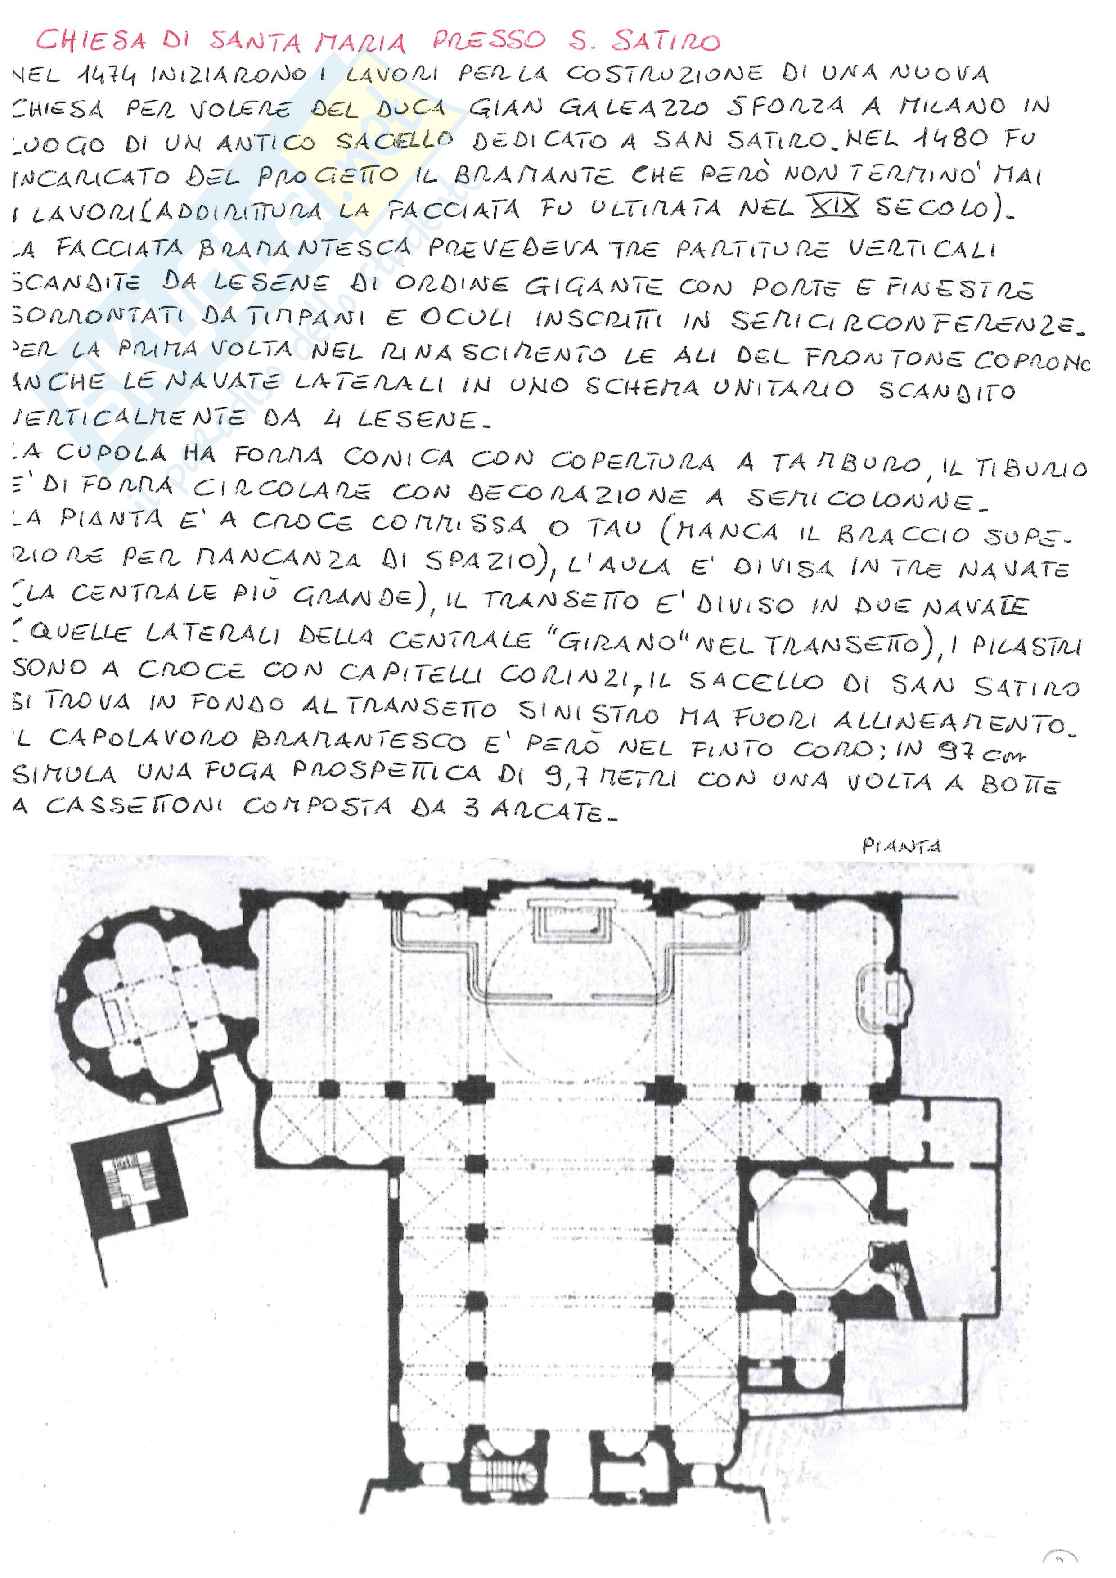 CHIESA DI SANTA MARIA PRESSO S. SATIRO
NEL 1474 INIZIARONO I LAVORI PER LA COSTRUZIONE DI UNA NUOVA
CHIESA PER VOLERE DEL DUCA GIAN GALEAZZO SFORZA A MILANO IN
LUOGO DI UN ANTICO SACELLO DEDICATO A SAN SATIRO. NEL 1480 FU
INCARICATO DEL PROGETTO IL BRAMANTE CHE PERÒ NON TERMINO' MAI
I LAVORI (ADDIRITTURA LA FACCIATA FU ULTIMATA NEL XIX SECOLO).
LA FACCIATA BRAMANTESCA PREVEDEVA TRE PARTITURE VERTICALI
SCANDITE DA LESENE DI ORDINE GIGANTE CON PORTE E FINESTRE
SORRONTATI DA TIMPANI E OCULI INSCRITTI IN SEMICIRCONFERENZE.
PER LA PRIMA VOLTA NEL RINASCIMENTO LE ALI DEL FRONTONE COPRONO
ANCHE LE NAVATE LATERALI IN UNO SCHEMA UNITARIO SCANDITO
VERTICALMENTE DA 4 LESENE.
LA CUPOLA HA FORMA CONICA CON COPERTURA A TAMBURO, IL TIBURIO
E' DI FORMA CIRCOLARE CON DECORAZIONE A SEMICOLONNE.
LA PIANTA E' A CROCE COMMISSA O TAU (MANCA IL BRACCIO SUPE-
RIORE PER MANCANZA DI SPAZIO), L'AULA E' DIVISA IN TRE NAVATE
(LA CENTRALE PIÙ GRANDE), IL TRANSETTO E' DIVISO IN DUE NAVATE
(QUELLE LATERALI DELLA CENTRALE "GIRANO" NEL TRANSETTO), I PILASTRI
SONO A CROCE CON CAPITELLI CORINZI, IL SACELLO DI SAN SATIRO
SI TROVA IN FONDO AL TRANSETTO SINISTRO MA FUORI ALLINEAMENTO.
IL CAPOLAVORO BRAMANTESCO E' PERÒ NEL FINTO CORO; IN 97 cm
SIMULA UNA FUGA PROSPETTICA DI 9,7 METRI CON UNA VOLTA A BOTTE
A CASSETTONI COMPOSTA DA 3 ARCATE.
PIANTA